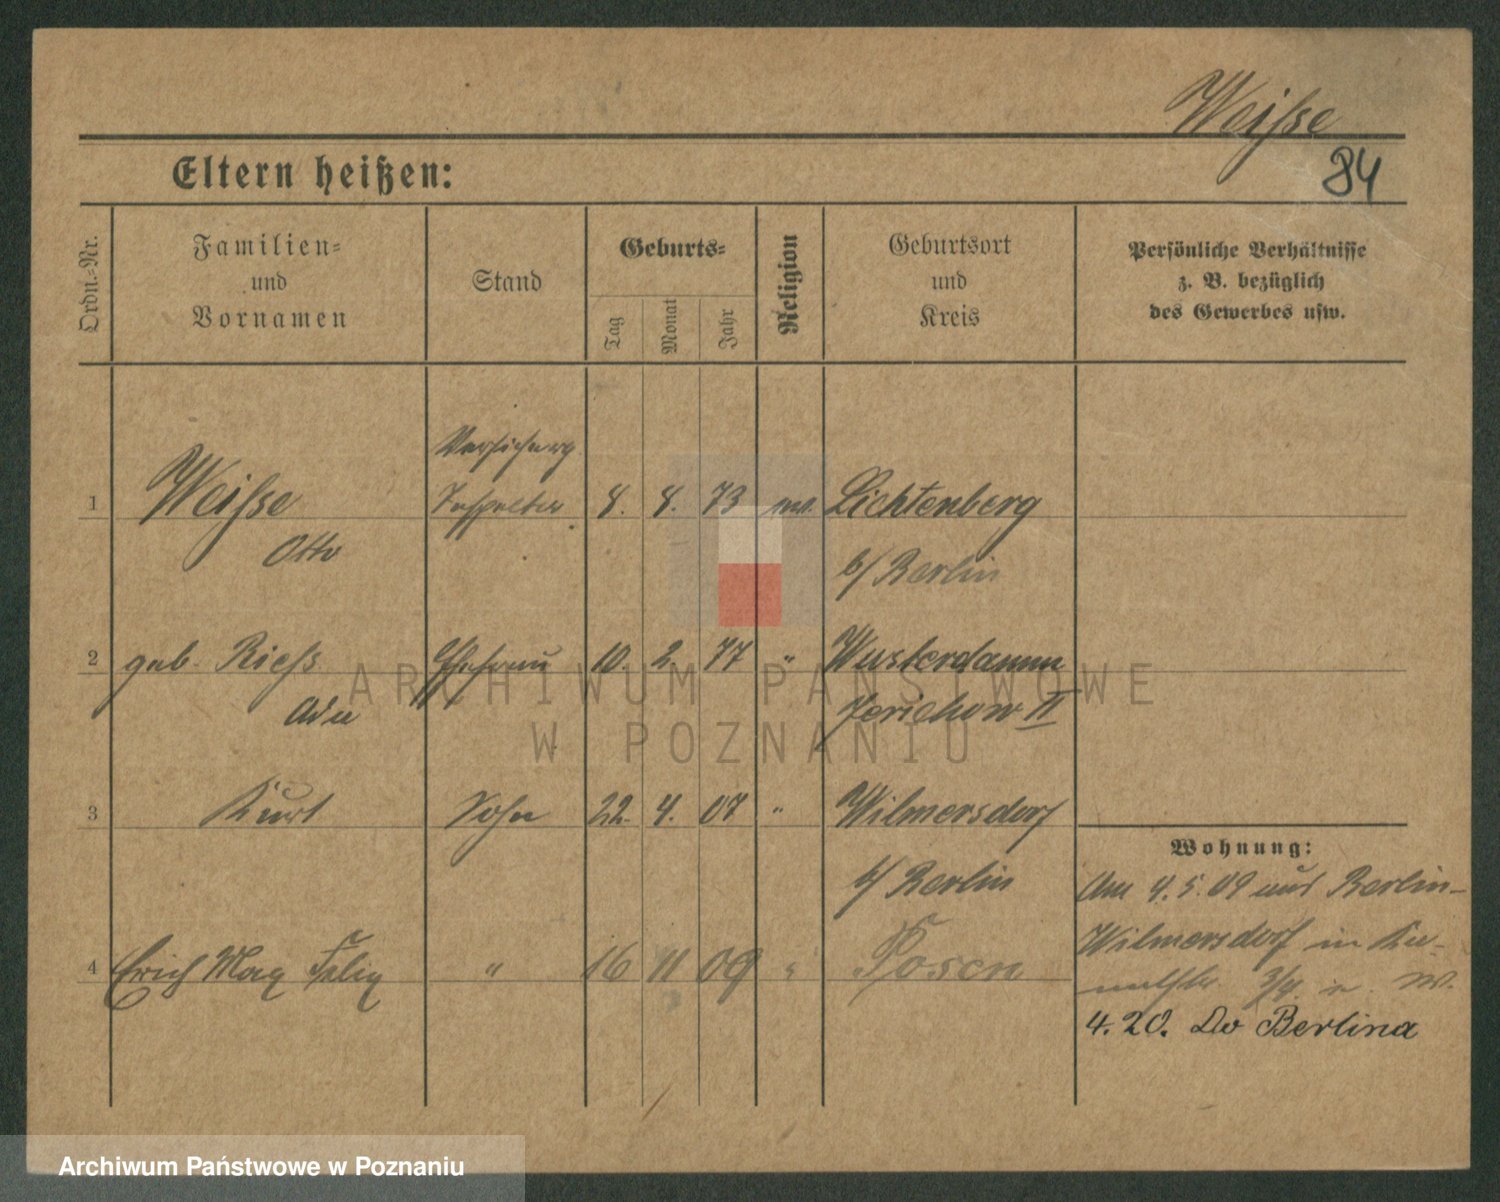 Weiſse
84
Eltern heißen:
Ordn.-Nr.
Familien-
und
Vornamen
Stand
Geburts-
Tag
Monat
Jahr
Religion
Geburtsort
und
Kreis
Persönliche Verhältnisse
z. B. bezüglich
des Gewerbes usw.
Versicherg
1 Weiſse Inspektor 8. 8. 73 ev. Lichtenberg
Otto b/ Berlin
2 geb. Rieſs Ehefrau 10. 2. 77 " Wusterdamm
Ada Jerichow II
3 Kurt Sohn 22. 4. 07 " Wilmersdorf
b/ Berlin
4 Erich Max Felix " 16 11 09 " Posen
Wohnung:
Am 4. 5. 09 aus Berlin-
Wilmersdorf in
3/4.
4. 20. Do Berlina
ARCHIWUM PAŃSTWOWE
W POZNANIU
Archiwum Państwowe w Poznaniu